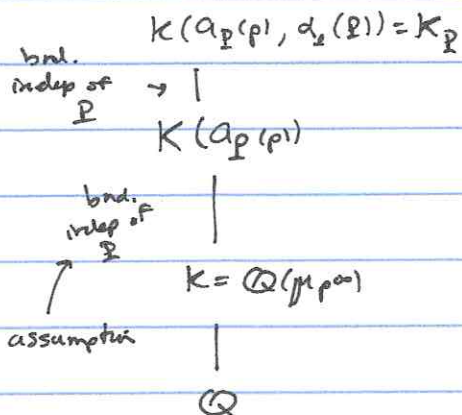 K(a_P(p), α_1(P)) = K_P
bnd.
indep of →
P
K(a_P(p))
bnd.
indep of
P
K = Q(μ_p∞)
assumption
Q